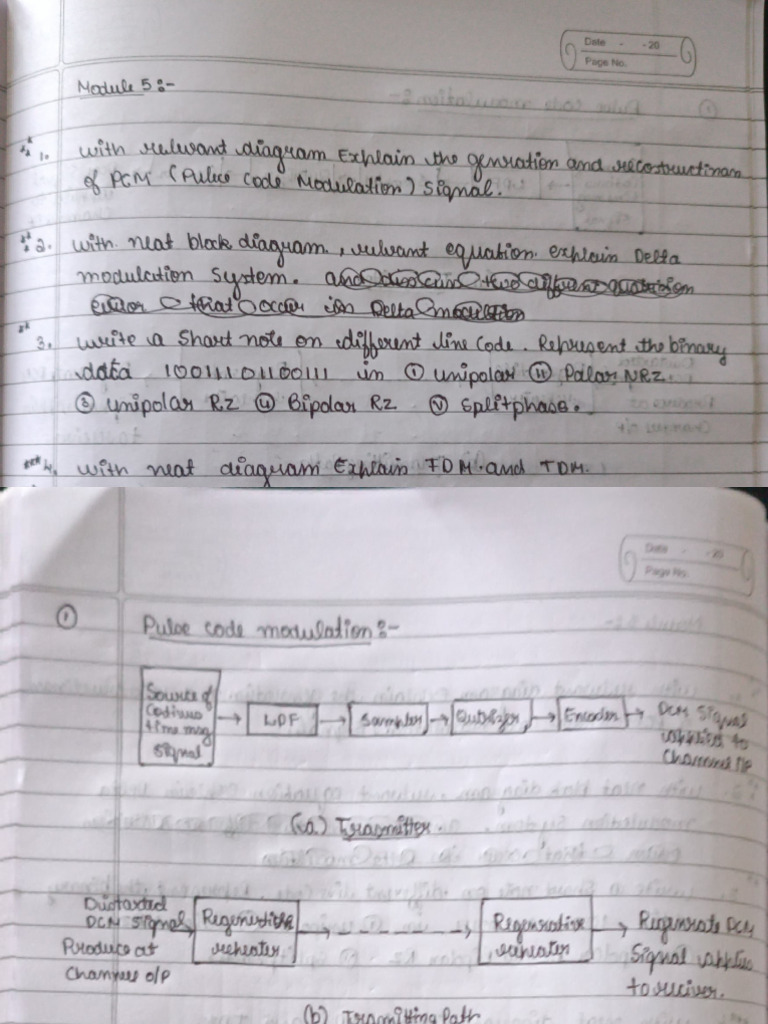 Date - - 20
Page No.
Module 5:-
1. with relevant diagram Explain the genration and recostructinam
of PCM (Pulse code Modulation) signal.
2. with neat block diagram, relvant equation explain Delta
modulation system.
3. write a short note on different line code. Represent the binary
data 10011101100111 in (i) unipolar (ii) Polar NRZ.
(3) unipolar RZ (4) Bipolar RZ (v) splitphase.
4. with neat diagram Explain FDM and TDM.
Date - -20
Page No.
(1) Pulse code modulation:-
Source of
time msg
signal
LPF
Sampler
Encoder
PCM Signal
applied to
Channel I/P
(a) Transmitter.
Distorted
PCM Signal
Produce at
Channel o/p
repeater
Regenrative
repeater
Regenrate PCM
Signal applied
to reciver.
(b) Transmitting Path